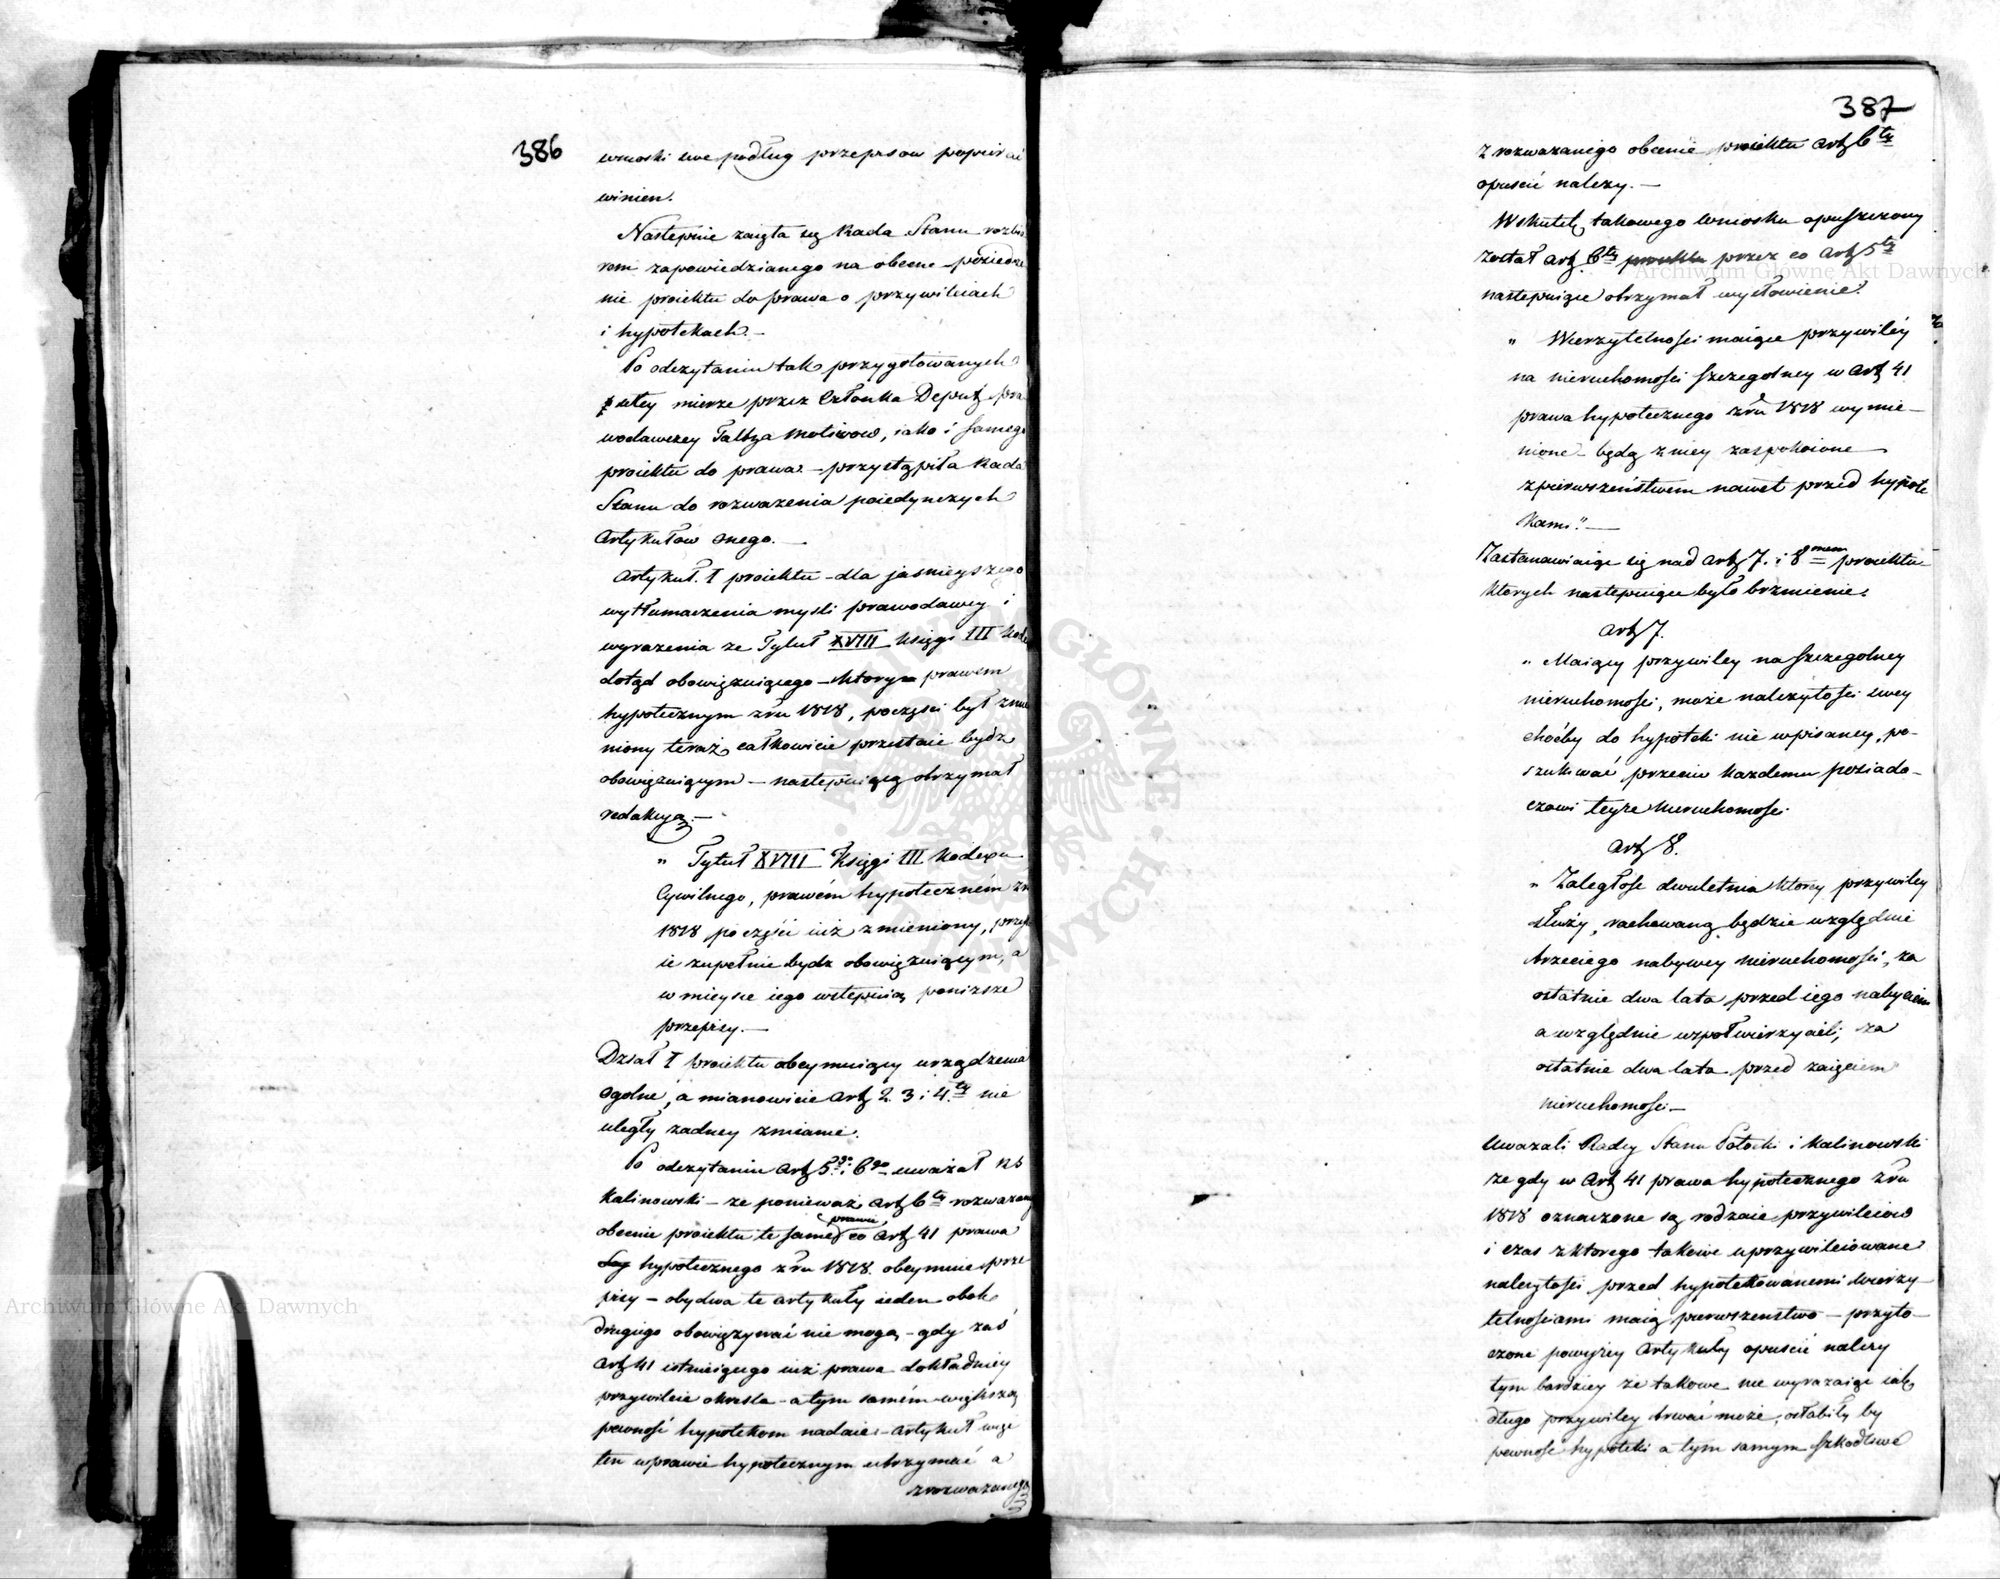 386
wnioski swe podług przepisow popierać
winien.
Następnie zaięta się Rada Stanu rozbio
rem zapowiedzianego na obecne posiedze
nie proiektu do prawa o przywileiach
i hypotekach. —
Po odczytaniu tak przygotowanych
w tey mierze przez Członka Deput: pra
wodawczey Motivow, iako i samego
proiektu do prawa — przystąpiła Rada
Stanu do rozwazenia poiedynczych
Artykułow onego. —
Artykuł I proiektu — dla jasnieyszego
wytłumaczenia mysli prawodawcy i
wyrazenia ze Tytuł XVIII Księgi III Kode
dotąd obowięzuiącego — ktory prawem
hypotecznym z ru 1818, poczęsci był zmie
niony teraz całkowicie przestaie bydz
obowięzuiącym — następuiącą otrzymał
redakcyą. —
" Tytuł XVIII Księgi III Kodexu
Cywilnego, prawem hypotecznem z r
1818 poczęści iuż zmieniony, przesta
ie zupełnie bydz obowięzuiącym, a
w mieysce iego wstępuią ponizsze
przepisy. —
Dział I proiektu obeymuiący urządzenia
ogolne, a mianowicie Art. 2. 3 i 4ty nie
uległy zadney zmianie.
Po odczytaniu Art 5go i 6go uważał RS
Kalinowski — ze ponieważ Art 6ty rozwazaneg
prawie
obecnie proiektu te same co Art 41 prawa
hypotecznego z ru 1818. obeymuie prze
pisy — obydwa te artykuły ieden obok
drugiego obowięzywać nie mogą — gdy zaś
Art 41 istnieiącego iuż prawa dokładniey
przywileie okresla — a tym samém większą
pewność hypotekom nadaie — Artykuł więc
ten w prawie hypotecznym utrzymać a
z rozwazanego
387
z rozwazanego obecnie proiektu Art 6ty
opuscić nalezy. —
Wskutek takowego wniosku opuszczony
został Art. 6ty proiektu przez co Art 5ty
następuiące otrzymał wysłowienie.
" Wierzytelności maiące przywiléy
na nieruchomości szczegolney w Art 41
prawa hypotecznego z ru 1818 wymie —
nione — będą z niey zaspokoione
z pierwszeństwem nawet przed hypote
kami." —
Zastanawiaiąc się nad Art 7. i 8mem proiektu
ktorych następuiące było brzmienie.
Art 7.
" Maiący przywiley na szczegolney
nieruchomości, może należytości swey
choćby do hypoteki nie wpisaney, po-
szukiwać przeciw kazdemu posiada-
czowi teyże nieruchomości
Art 8.
" Zaległość dwuletnia ktorey przywiley
służy, rachowaną będzie względnie
trzeciego nabywcy nieruchomości, za
ostatnie dwa lata przed iego nabyciem
a względnie wspołwierzycieli, za
ostatnie dwa lata przed zaięciem
nieruchomości —
Uwazali Radcy Stanu Potocki i Kalinowski
ze gdy w Art 41 prawa hypotecznego z ru
1818 oznaczone są rodzaie przywileiow
i czas z ktorego takowe uprzywileiowane
należytości przed hypotekowanemi wierzy
telnościami maią pierwszenstwo — przyto —
czone powyżey Artykuły opuscić nalezy
tym bardziey że takowe nie wyrazaiąc iak
długo przywiley trwać może, osłabiły by
pewność hypoteki a tym samym szkodliwe
Archiwum Główne Akt Dawnych
Archiwum Główne Akt Dawnych